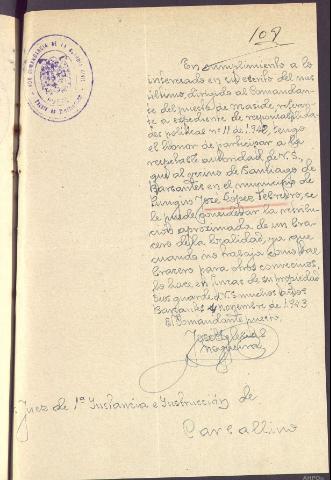 108
En cumplimiento a lo
interesado en su escrito del mes
último, dirigido al Comandan-
te del puesto de Maside, referen-
te a expediente de responsabilida-
des políticas nº 11 de 1.942, tengo
el honor de participar a la
respetable autoridad de V.S,
que al vecino de Santiago de
Barbantes en el municipio de
Punguin José López Febrero, se
le puede considerar la retribu-
ción aproximada de un bra-
cero de la localidad, ya que
cuando no trabaja como bra-
cero para otros convecinos,
lo hace en fincas de su propiedad
Dios guarde a V.S muchos años
Barbantes 4 noviembre de 1.943
El Comandante puesto.
José Iglesias
Nogueira
Juez de 1ª Instancia e Instrucción de
Carballino